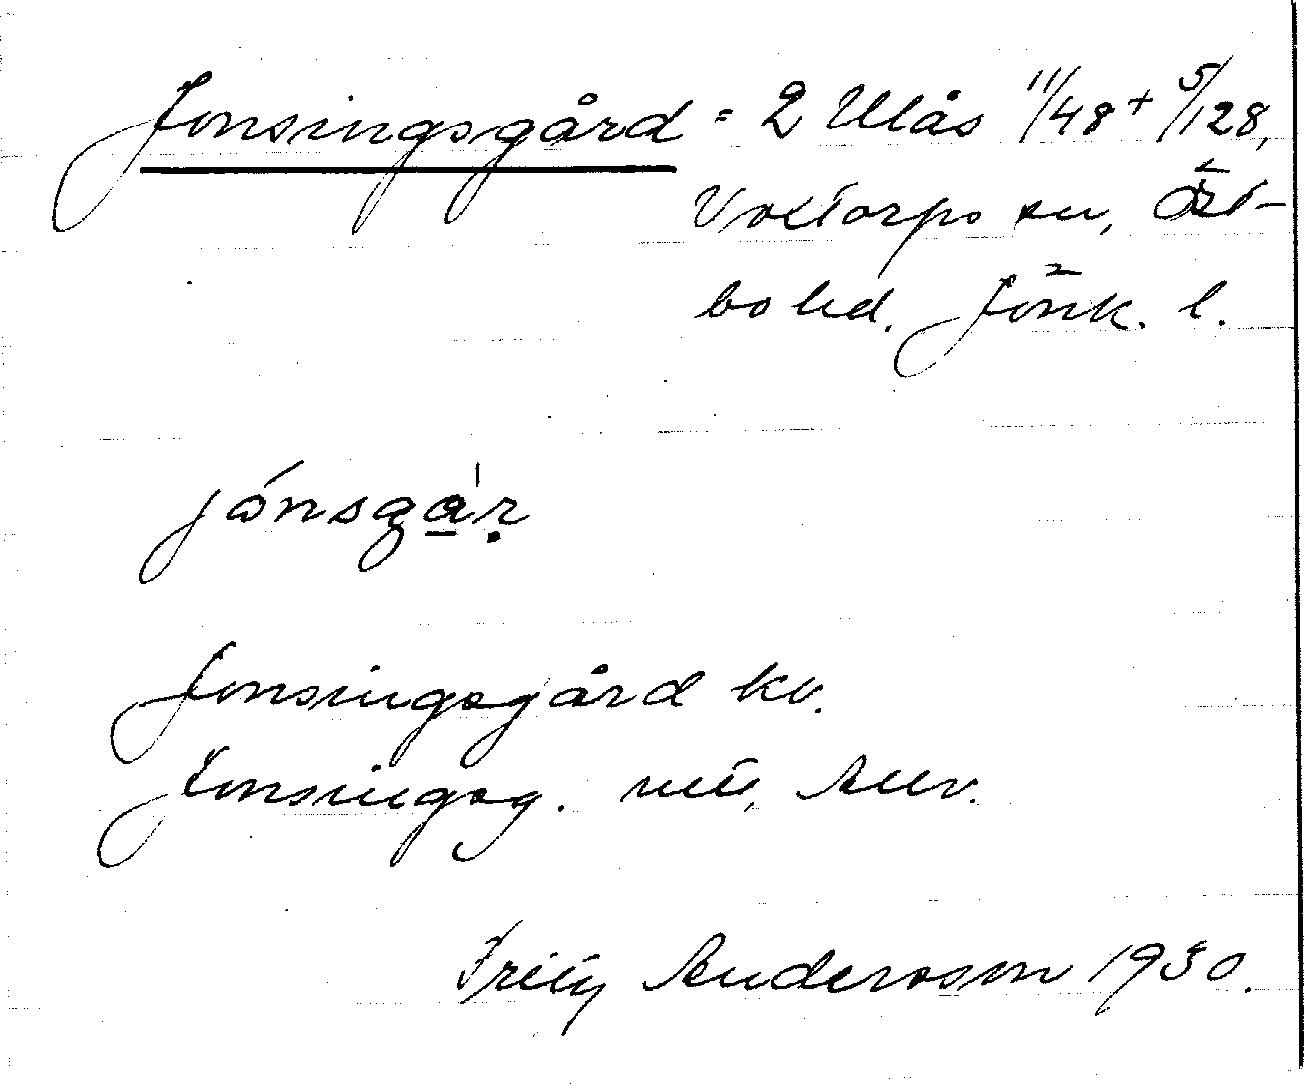 Jonsingsgård = 2 Ulås 11/48 + 5/128,
Voxtorps sn, Öst-
bo hd. Jönk. l.
jónsga̠'ṛ
Jonsingsgård kv.
Jonsingsg. Anv.
Fritz Andersson 1930.